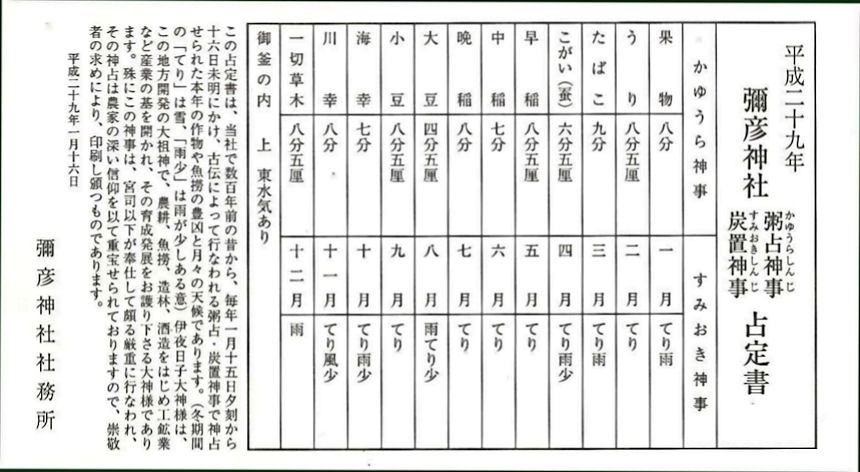 平成二十九年
彌彦神社 粥占神事 炭置神事 占定書
かゆうらしんじ
すみおきしんじ
かゆうら神事 すみおき神事
果物 八分 一月 てり雨
うり 八分五厘 二月 てり
たばこ 九分 三月 てり雨
こがい(蚕) 六分五厘 四月 てり雨少
早稲 八分五厘 五月 てり
中稲 七分 六月 てり
晩稲 八分 七月 てり
大豆 四分五厘 八月 雨てり少
小豆 八分五厘 九月 てり
海幸 七分 十月 てり雨少
川幸 八分 十一月 てり風少
一切草木 八分五厘 十二月 雨
御釜の内 上 東水気あり
この占定書は、当社で数百年前の昔から、毎年一月十五日夕刻から
十六日未明にかけ、古伝によって行なわれる粥占・炭置神事で神占
せられた本年の作物や魚撈の豊凶と月々の天候であります。(冬期間
の「てり」は雪、「雨少」は雨が少しある意)伊夜日子大神様は、
この地方開発の大祖神で、農耕、魚撈、造林、酒造をはじめ工鉱業
など産業の基を開かれ、その育成発展をお護り下さる大神様であり
ます。殊にこの神事は、宮司以下が奉仕して頗る厳重に行なわれ、
その神占は農家の深い信仰を以て重宝せられておりますので、崇敬
者の求めにより、印刷し頒つものであります。
平成二十九年一月十六日
彌彦神社社務所